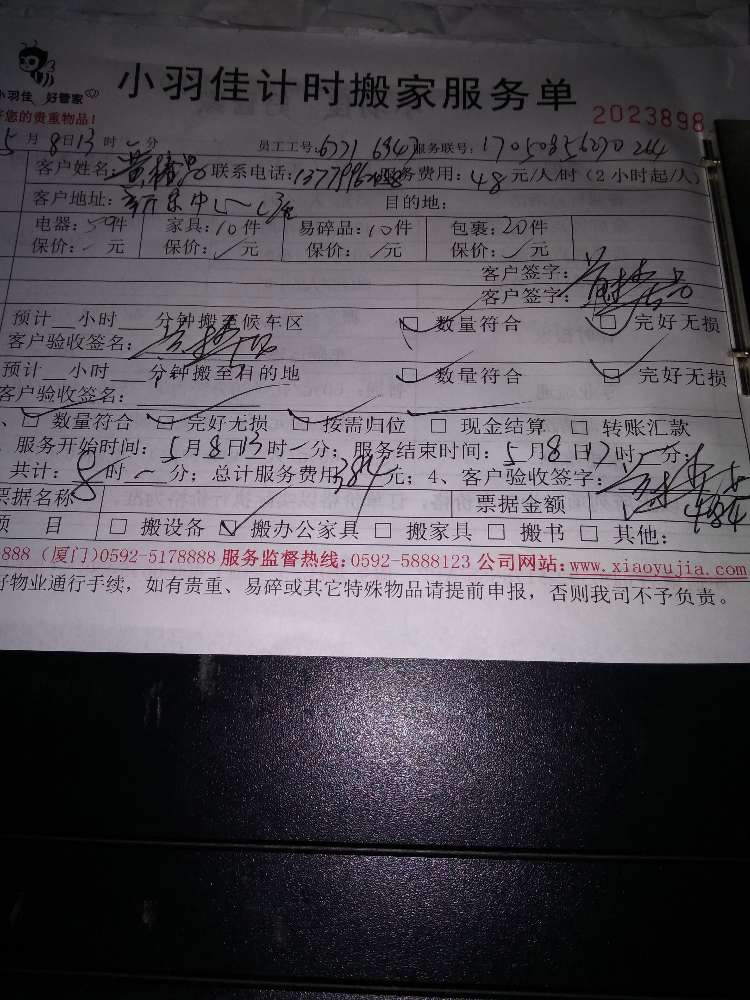 小羽佳 好管家
小羽佳计时搬家服务单
2023898
您的贵重物品!
5月8日13时一分 员工工号:6771 6947 服务联号:
客户姓名: 联系电话: 服务费用:48元/人/时(2小时起/人)
客户地址: 目的地:
电器:59件 家具:10件 易碎品:10件 包裹:20件
保价: 元 保价: 元 保价: 元 保价: 元
客户签字:
客户签字:
预计 小时 分钟搬至候车区 数量符合 完好无损
客户验收签名:
预计 小时 分钟搬至目的地 数量符合 完好无损
客户验收签名:
、□ 数量符合 □ 完好无损 □ 按需归位 □ 现金结算 □ 转账汇款
服务开始时间:5月8日13时一分;服务结束时间:5月8日17时 分;
共计:8时一分;总计服务费用384元;4、客户验收签字:
票据名称 票据金额 484
项 目 □ 搬设备 □ 搬办公家具 □ 搬家具 □ 搬书 □ 其他:
888(厦门)0592-5178888 服务监督热线:0592-5888123 公司网站:www.xiaoyujia.com
好物业通行手续,如有贵重、易碎或其它特殊物品请提前申报,否则我司不予负责。